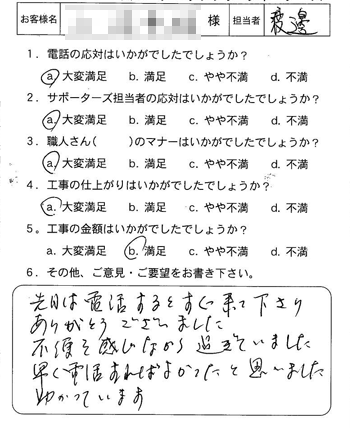 お客様名 様 担当者 渡邊
1．電話の応対はいかがでしたでしょうか？
a. 大変満足 b. 満足 c. やや不満 d. 不満
2．サポーターズ担当者の応対はいかがでしたでしょうか？
a. 大変満足 b. 満足 c. やや不満 d. 不満
3．職人さん( )のマナーはいかがでしたでしょうか？
a. 大変満足 b. 満足 c. やや不満 d. 不満
4．工事の仕上がりはいかがでしたでしょうか？
a. 大変満足 b. 満足 c. やや不満 d. 不満
5。工事の金額はいかがでしたでしょうか？
a. 大変満足 b. 満足 c. やや不満 d. 不満
6．その他、ご意見・ご要望をお書き下さい。
先日は電話するとすぐ来て下さり
ありがとうございました
不便を感じながら過ぎていました
早く電話すればよかったと思いました
助かっています